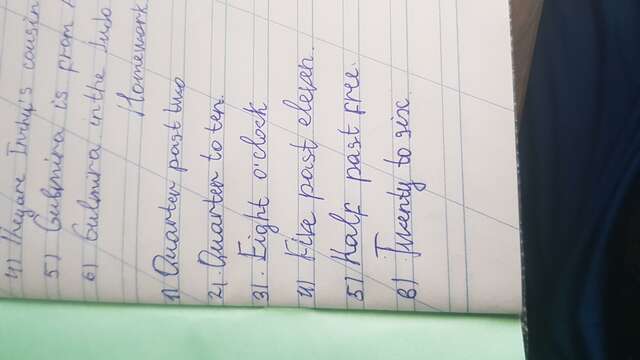 4) They are Indiy's cousin
5) Gulmira is from
6) Gulmira in the
Homework
1) Quarter past two
2). Quarter to ten.
3). Eight o'clock
4) Five past eleven.
5) Half past free.
6) Twenty to six.